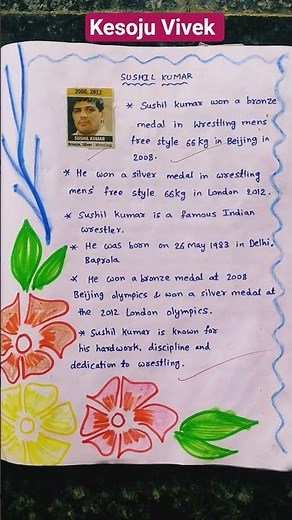 Kesoju Vivek
SUSHIL KUMAR
2008, 2012
SUSHIL KUMAR
Bronze, Silver | Wrestling
* Sushil kumar won a bronze
medal in wrestling mens'
free style 66 kg in Beijing in
2008.
* He won a silver medal in wrestling
mens' free style 66kg in London 2012.
* Sushil kumar is a famous Indian
wrestler.
* He was born on 26 May 1983 in Delhi,
Baprola
* He won a bronze medal at 2008
Beijing olympics & won a silver medal at
the 2012 London olympics.
* Sushil kumar is known for
his hardwork, discipline and
dedication to wrestling.